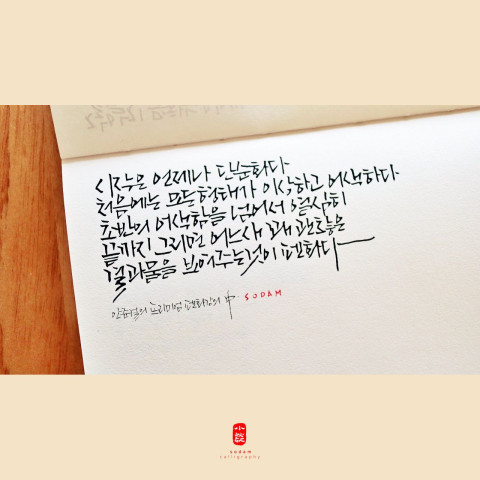 시작은 언제나 단순하다
처음에는 모든 형태가 이상하고 어색하다
초반의 어색함을 넘어서 열심히
끝까지 그리면 어느새 꽤 괜찮은
결과물을 보여주는것이 펜화다
안충기의 프리미엄 펜화집의 中 · SODAM
小談
sodam
calligraphy